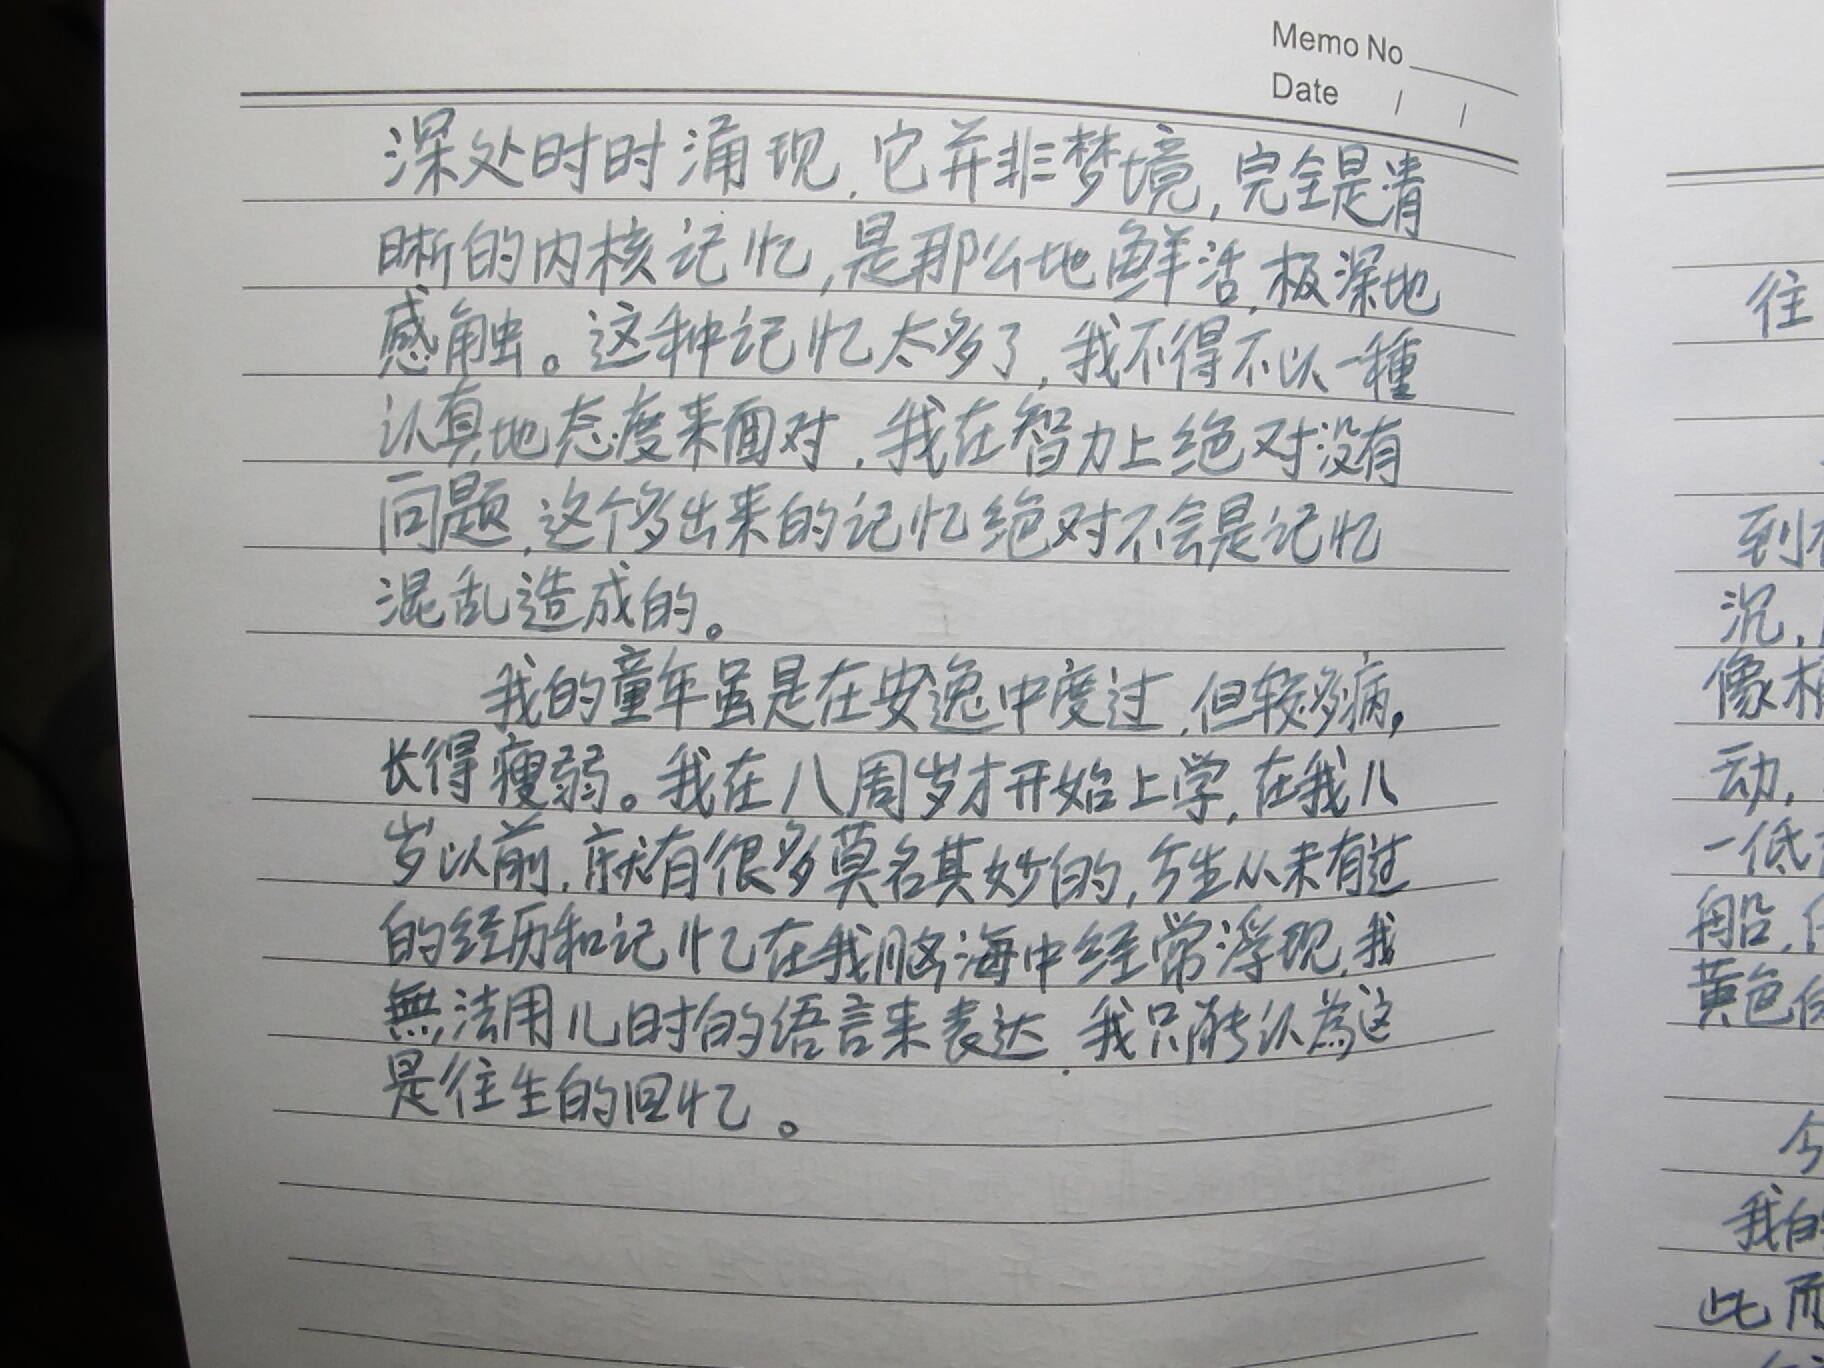 Memo No
Date / /
深处时时涌现,它并非梦境,完全是清
晰的内核记忆,是那么地鲜活,极深地
感触。这种记忆太多了,我不得不以一種
认真地态度来面对,我在智力上绝对没有
问题,这个多出来的记忆绝对不会是记忆
混乱造成的。
我的童年虽是在安逸中度过,但较多病,
长得瘦弱。我在八周岁才开始上学,在我八
岁以前,就有很多莫名其妙的,今生从未有过
的经历和记忆在我脑海中经常浮现,我
無法用儿时的语言来表达,我只能认為这
是往生的回忆。
往
到
沉,
像
动,
一低
船,
黄色
今
我的
此而